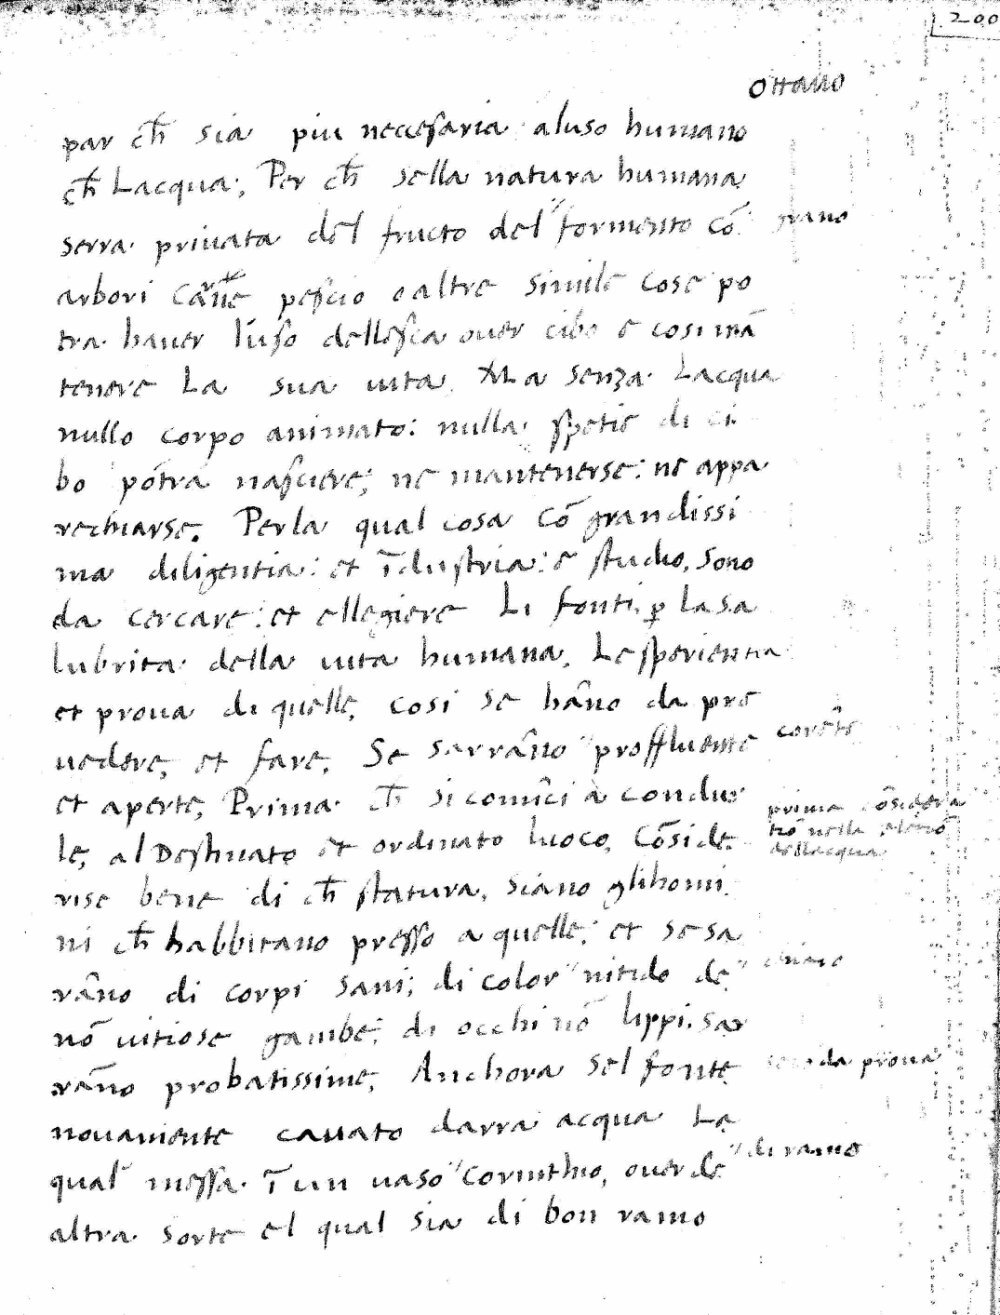 200
ottauo
par ch̄ sia piu neccessaria aluso humano
ch̄ Lacqua; Per ch̄ sella natura humana
serra priuata del fructo del "formento cō grano
arbori Carne pescio o altre simile cose po
tra hauer luso dellesca ouer cibo e cosi mā
tenere La sua uita. Ma senza Lacqua
nullo corpo animato: nulla spetie di ci
bo potra nasciere; ne mantenerse: ne appa
rechiarse. Perla qual cosa cō grandissi
ma diligentia: et īdustria: e studio, sono
da cercare: et ellegiere Li fonti, ꝑ la sa
lubrita della uita humana, Lesperientia
et proua di quelle, cosi se hāno da pro
uedere, et fare, Se sarrāno "proffluente corēte
et aperte, Prima ch̄ si comīci a condur
prima cōsidera
le, al Destinato et ordinato luoco, Cōside
tiō nella
dellacqua
rise bene di ch̄ statura, siano glihomi
ni ch̄ habbitano presso a quelle; et se sa
rāno di corpi sani; di color "nitido de "chiaro
nō uitiose gambe; di occhi nō lippi. sar
rāno probatissime, Anchora sel fonte
secōda proua
nouamente cauato darra acqua La
qual messa ī un uaso "Corinthio, ouer de "di ramo
altra sorte el qual sia di bon ramo